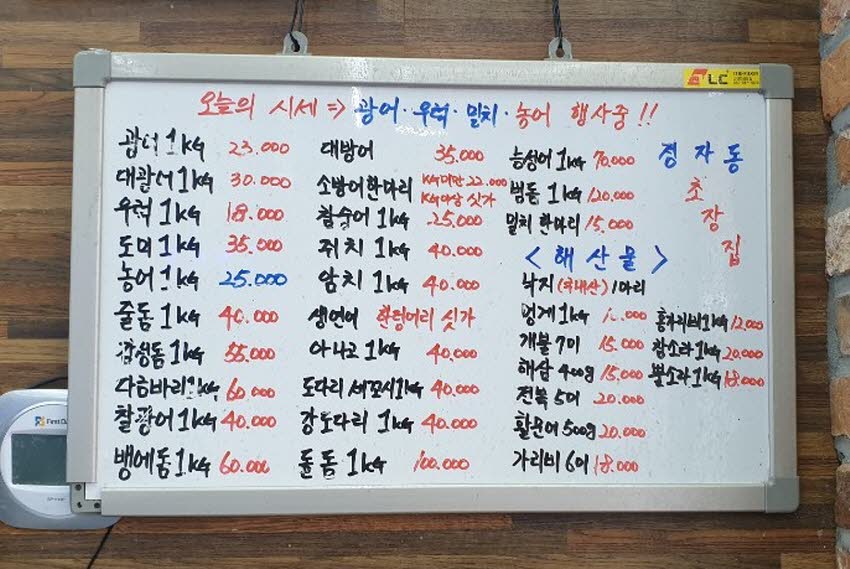 오늘의 시세 => 광어·우럭·밀치·농어 행사중!!
광어 1KG 23.000
대광어 1KG 30.000
우럭 1KG 18.000
도미 1KG 35.000
농어 1KG 25.000
줄돔 1KG 40.000
감성돔 1KG 55.000
다금바리 1KG 60.000
찰광어 1KG 40.000
뱅에돔 1KG 60.000
대방어 35.000
소방어한마리 KG미만 22.000
KG이상 싯가
참숭어 1KG 25.000
쥐치 1KG 40.000
암치 1KG 40.000
생연어 한덩어리 싯가
아나고 1KG 40.000
도다리 세꼬시 1KG 40.000
강도다리 1KG 40.000
돌돔 1KG 100.000
능성어 1KG 70.000
범돔 1KG 120.000
밀치 한마리 15.000
<해산물>
낙지 (국내산) 1마리
멍게 1KG 10.000
개불 7미 15.000
해삼 400g 15,000
전복 5미 20.000
활문어 500g 20.000
가리비 6미 18.000
홍가리비 1KG 12,000
참소라 1KG 20,000
뿔소라 1KG 18.000
경자동
초
장
집
LC